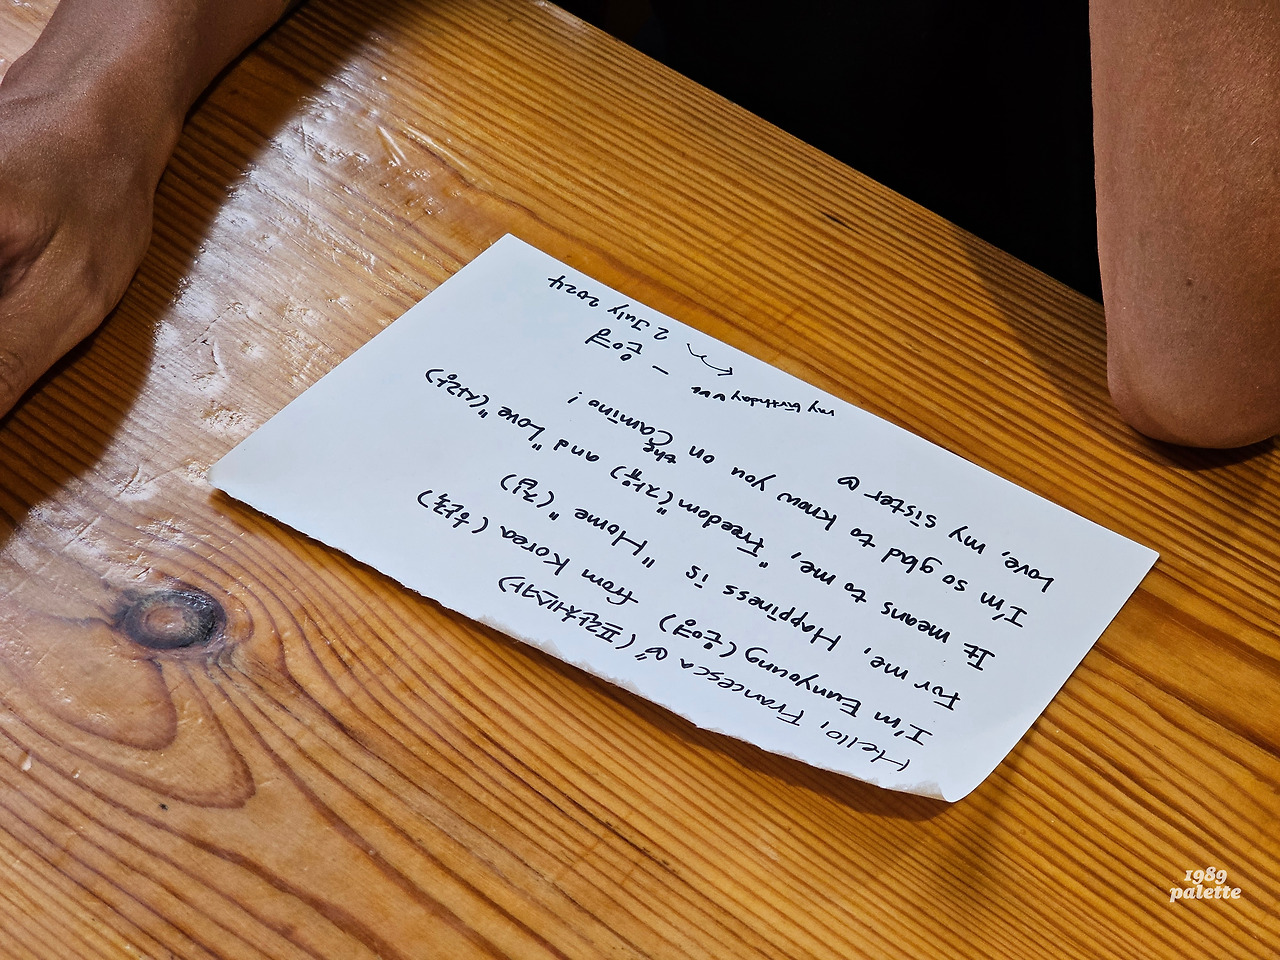 Hello, Francesca (프란체스카)
I'm Eunyoung (은영) from Korea (한국)
For me, Happiness is "Home" (집)
It means to me, "Freedom" (자유) and "Love" (사랑)
I'm so glad to know you on the Camino!
Love, my sister
my birthday
- 은영
2 July 2024
1989
palette